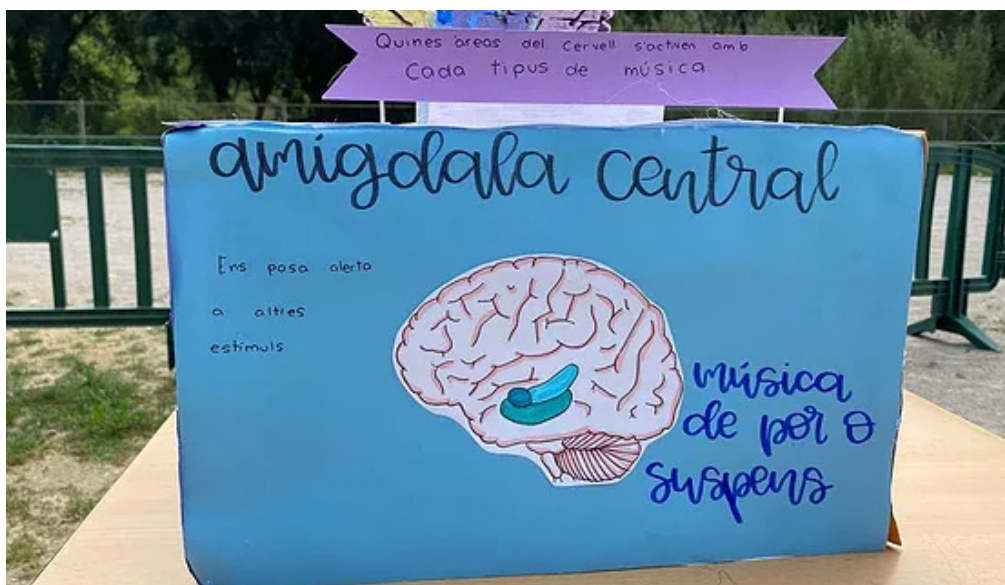 Quines àreas del cervell s'activen amb
Cada tipus de música
amígdala central
Ens posa alerta
a altres
estímuls
música
de por o
suspens